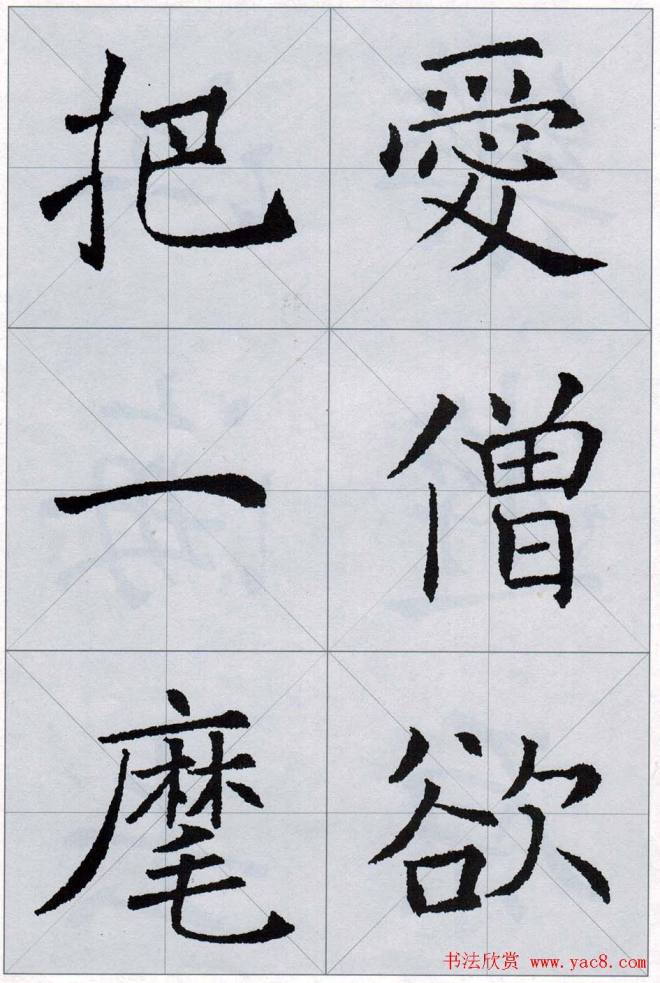 愛僧欲
把一麾
书法欣赏 www.yac8.com